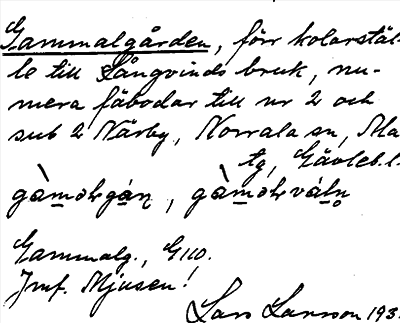 Gammalgården, förr kolarstäl-
le till Långvinds bruk, nu-
mera fäbodar till nr 2 och
sub 2 Närby, Norrala sn, Ala
tg, Gävleb. l.
Gammalg., G110.
Jmf. Mjusen!
Lars Larsson 193